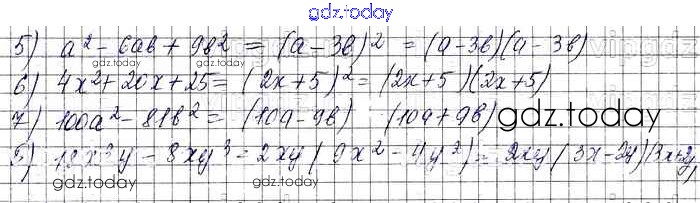 gdz.today
5) a² - 6ab + 9b² = (a - 3b)² = (a - 3b)(a - 3b)
6) 4x² + 20x + 25 = (2x + 5)² = (2x + 5)(2x + 5)
7) 100a² - 81b² = (10a - 9b) (10a + 9b)
gdz.today
5) 18x³y - 8xy³ = 2xy(9x² - 4y²) = 2xy(3x - 2y)(3x + 2y)
gdz.today
gdz.today